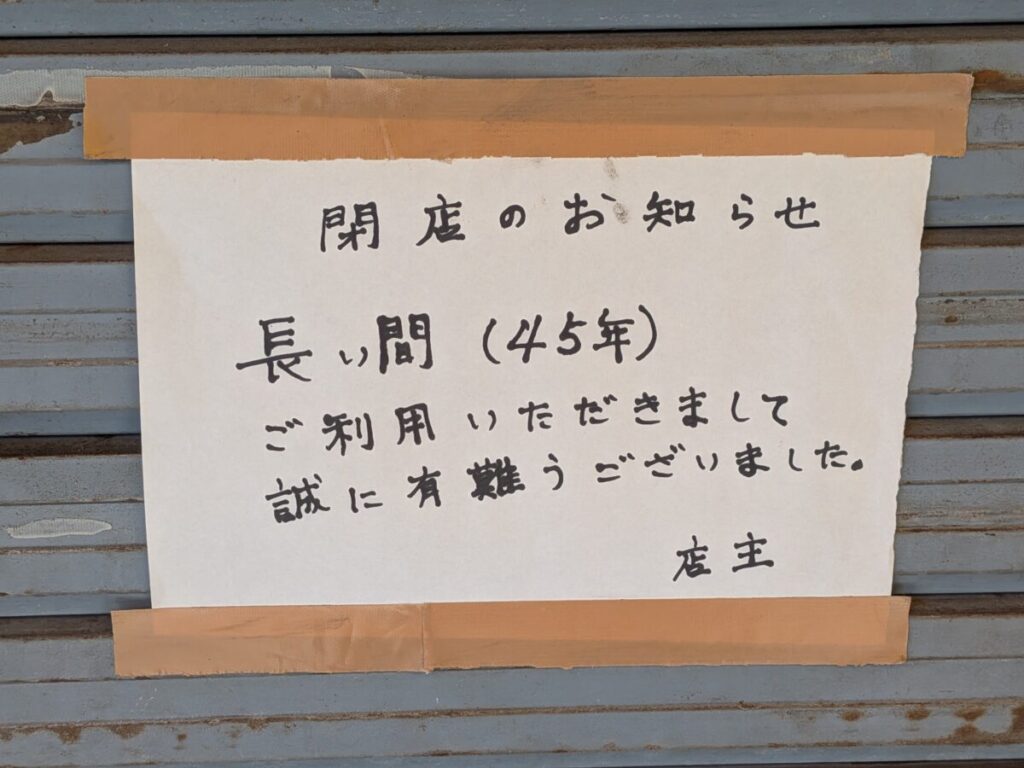 閉店のお知らせ
長い間(45年)
ご利用いただきまして
誠に有難うございました。
店主